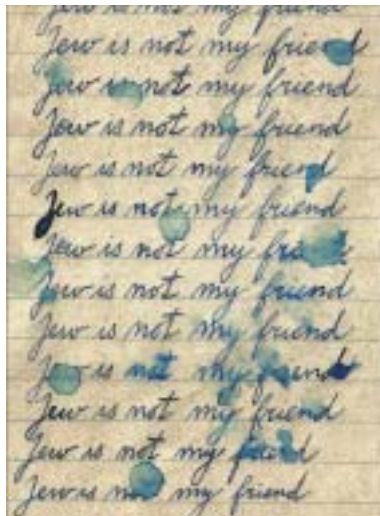 Jew is not my friend
Jew is not my friend
Jew is not my friend
Jew is not my friend
Jew is not my friend
Jew is not my friend
Jew is not my
Jew is not my friend
Jew is not my friend
Jew is not my friend
Jew is not my friend
Jew is not my friend
Jew is not my friend